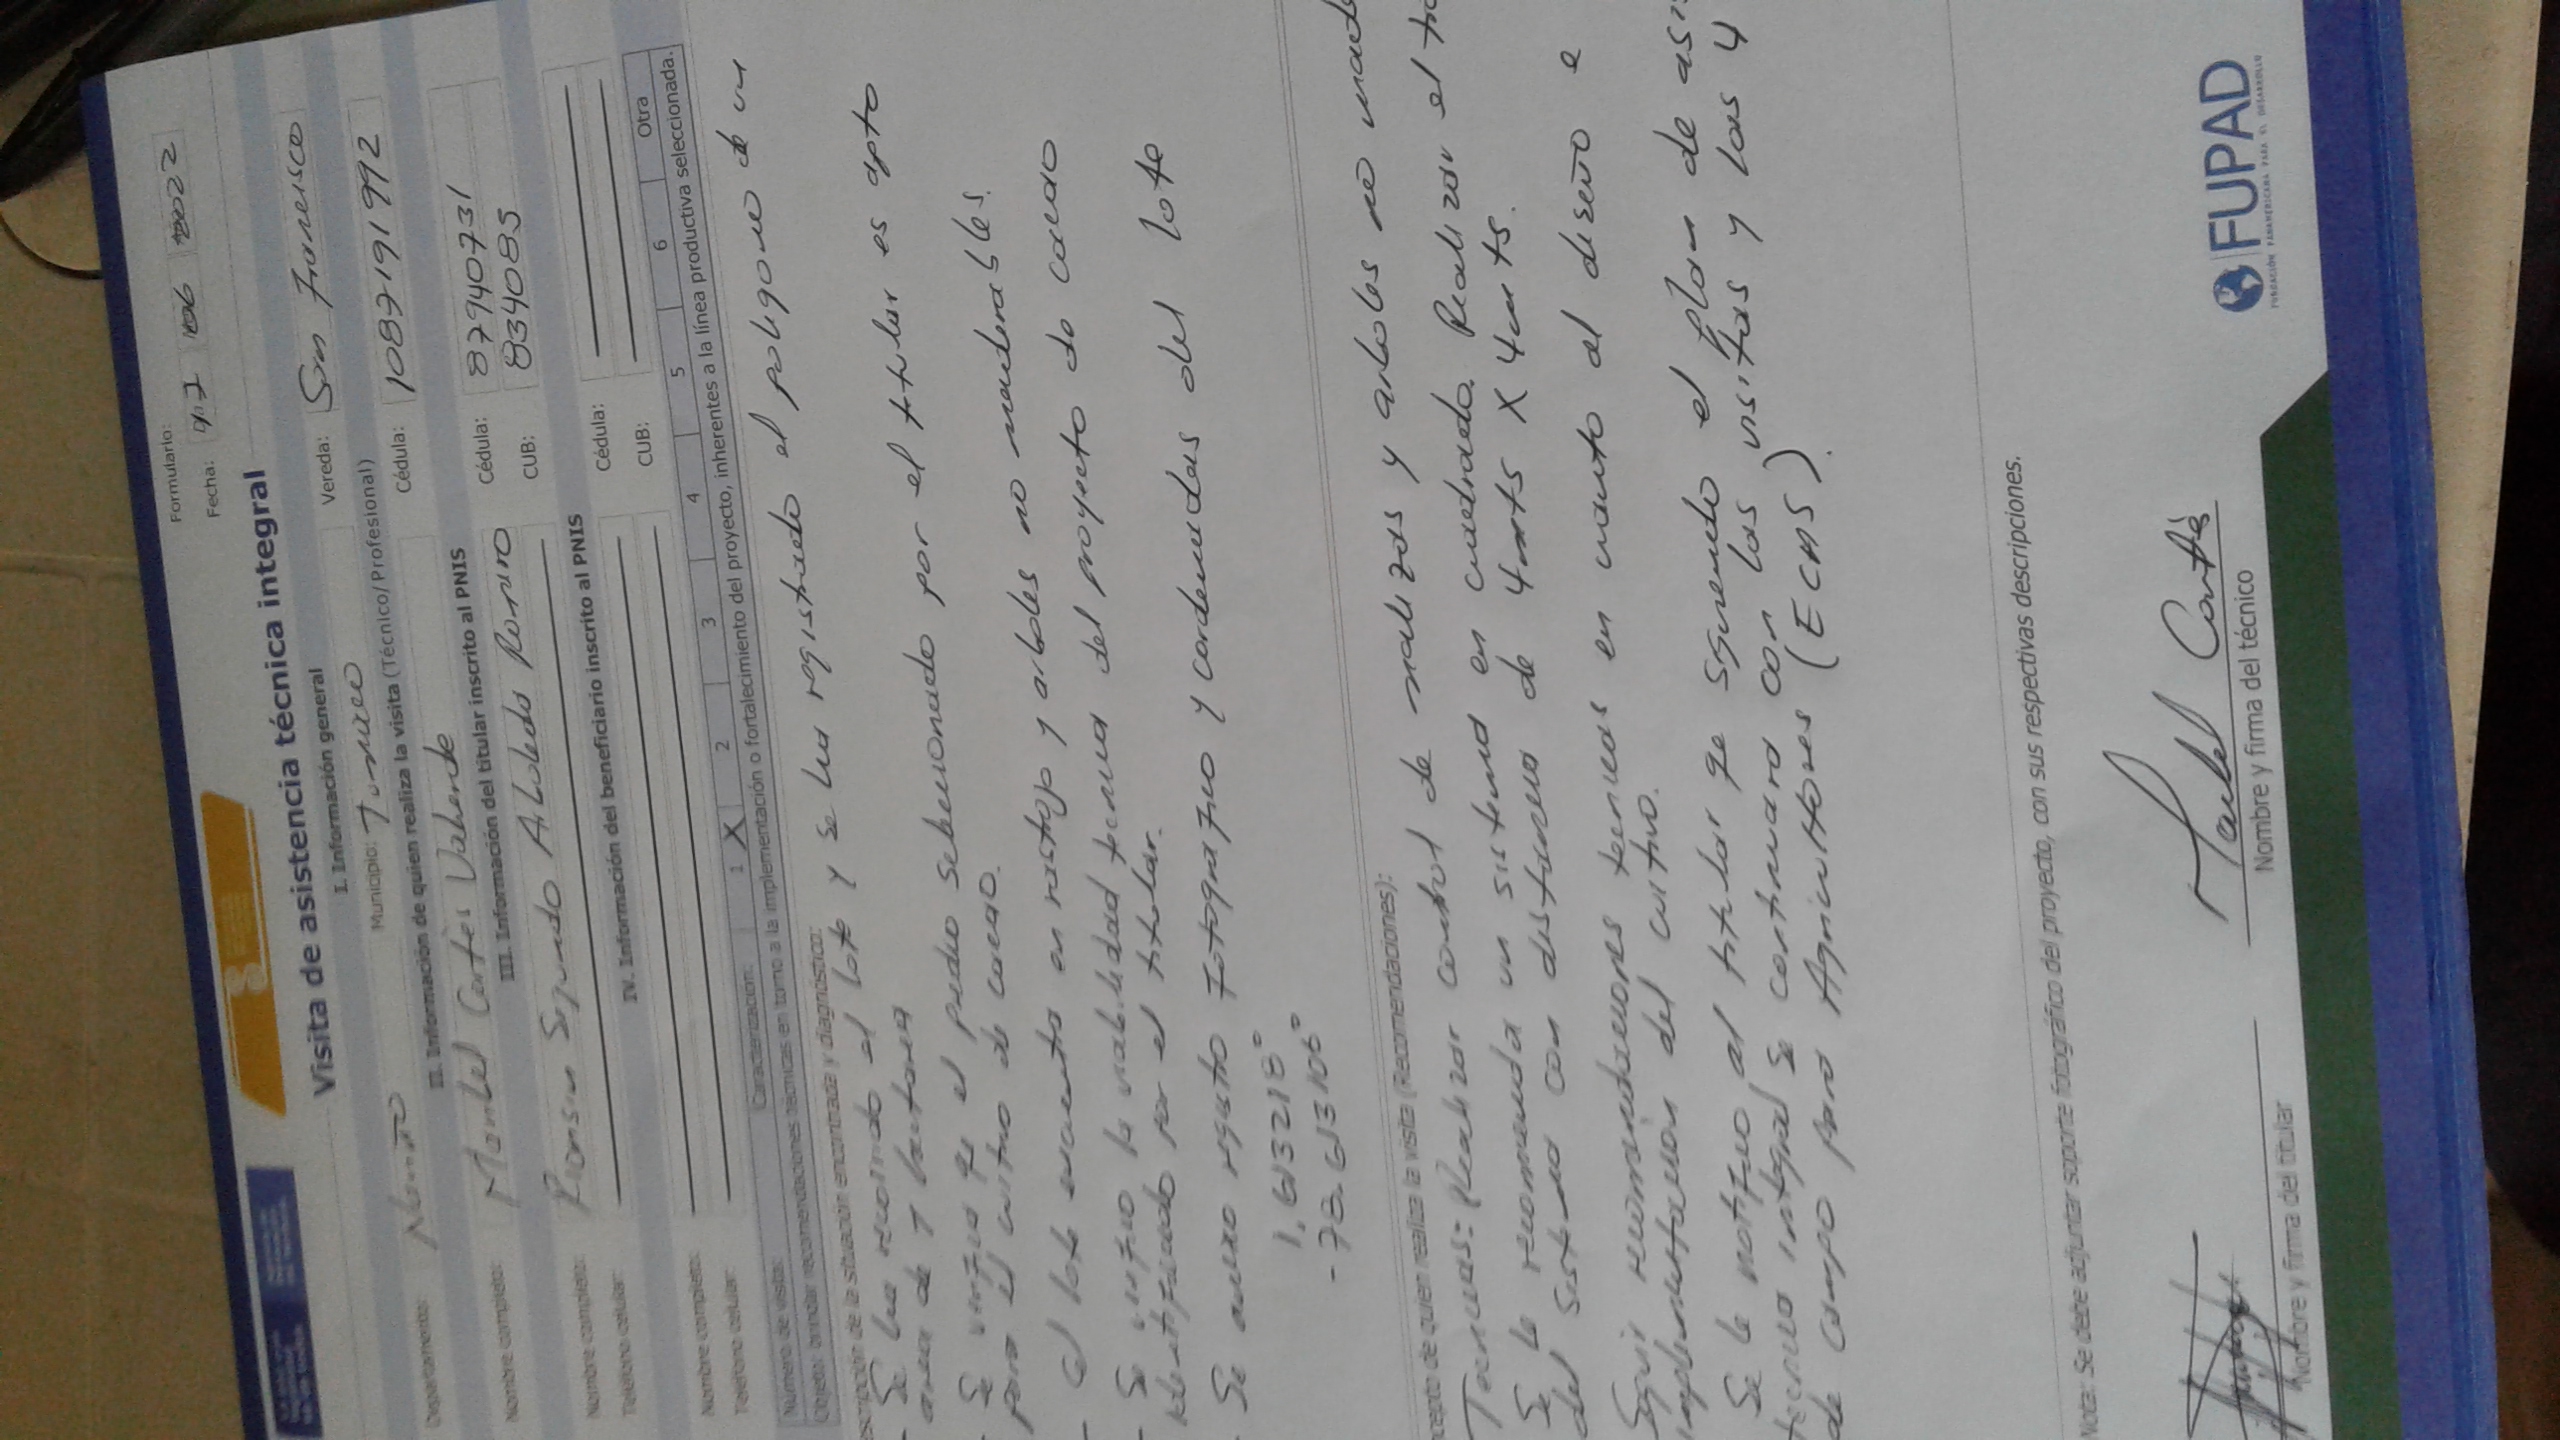 Formulario:
Fecha: 07 06 2022
Visita de asistencia técnica integral
I. Información general
Departamento: Nariño Municipio: Tumaco Vereda: San Francisco
II. Información de quien realiza la visita (Técnico/Profesional)
Nombre completo: Manuel Cortès Valverde Cédula: 1087191992
III. Información del titular inscrito al PNIS
Nombre completo: Segundo Arboleda Cédula: 87940731
Teléfono celular: CUB: 834085
IV. Información del beneficiario inscrito al PNIS
Nombre completo: Cédula:
Teléfono celular: CUB:
Número de visita: Caracterización: 1 X 2 3 4 5 6 Otra
Objeto: brindar recomendaciones técnicas en torno a la implementación o fortalecimiento del proyecto, inherentes a la línea productiva seleccionada.
escripción de la situación encontrada y diagnóstico:
- Se ha recorrido el lote y se ha registrado el poligono de un
area de 1 hectarea
- Se verifico qe el predio seleccionado por el titular es apto
para el cultivo de cacao.
- el lote encuentra en rastrojo y arboles no maderables.
- Se verifico la viabilidad tecnica del proyecto de cacao
identificado por el titular.
- Se anexo registro fotografico y cordenadas del lote
1,613218°
-78.613106°
ncepto de quien realiza la visita (Recomendaciones):
Tecnicas: Realizar control de malezas y arboles no made
Se le recomienda un sistema en cuadrado. Realizar el tra
del sistema con distancia de 4mts X 4mts.
Seguir recomendaciones tecnicas en cuanto al diseño e
implementación del cultivo.
Se le notifico al titular qe siguiendo el plan de asis
tecnica integral se continuara con las visitas y las 4
de campo para Agricultores (ECAS).
Nota: Se debe adjuntar soporte fotográfico del proyecto, con sus respectivas descripciones.
Manuel Cortès
Nombre y firma del titular Nombre y firma del técnico
FUPAD
FUNDACIÓN PANAMERICANA PARA EL DESARROLLO